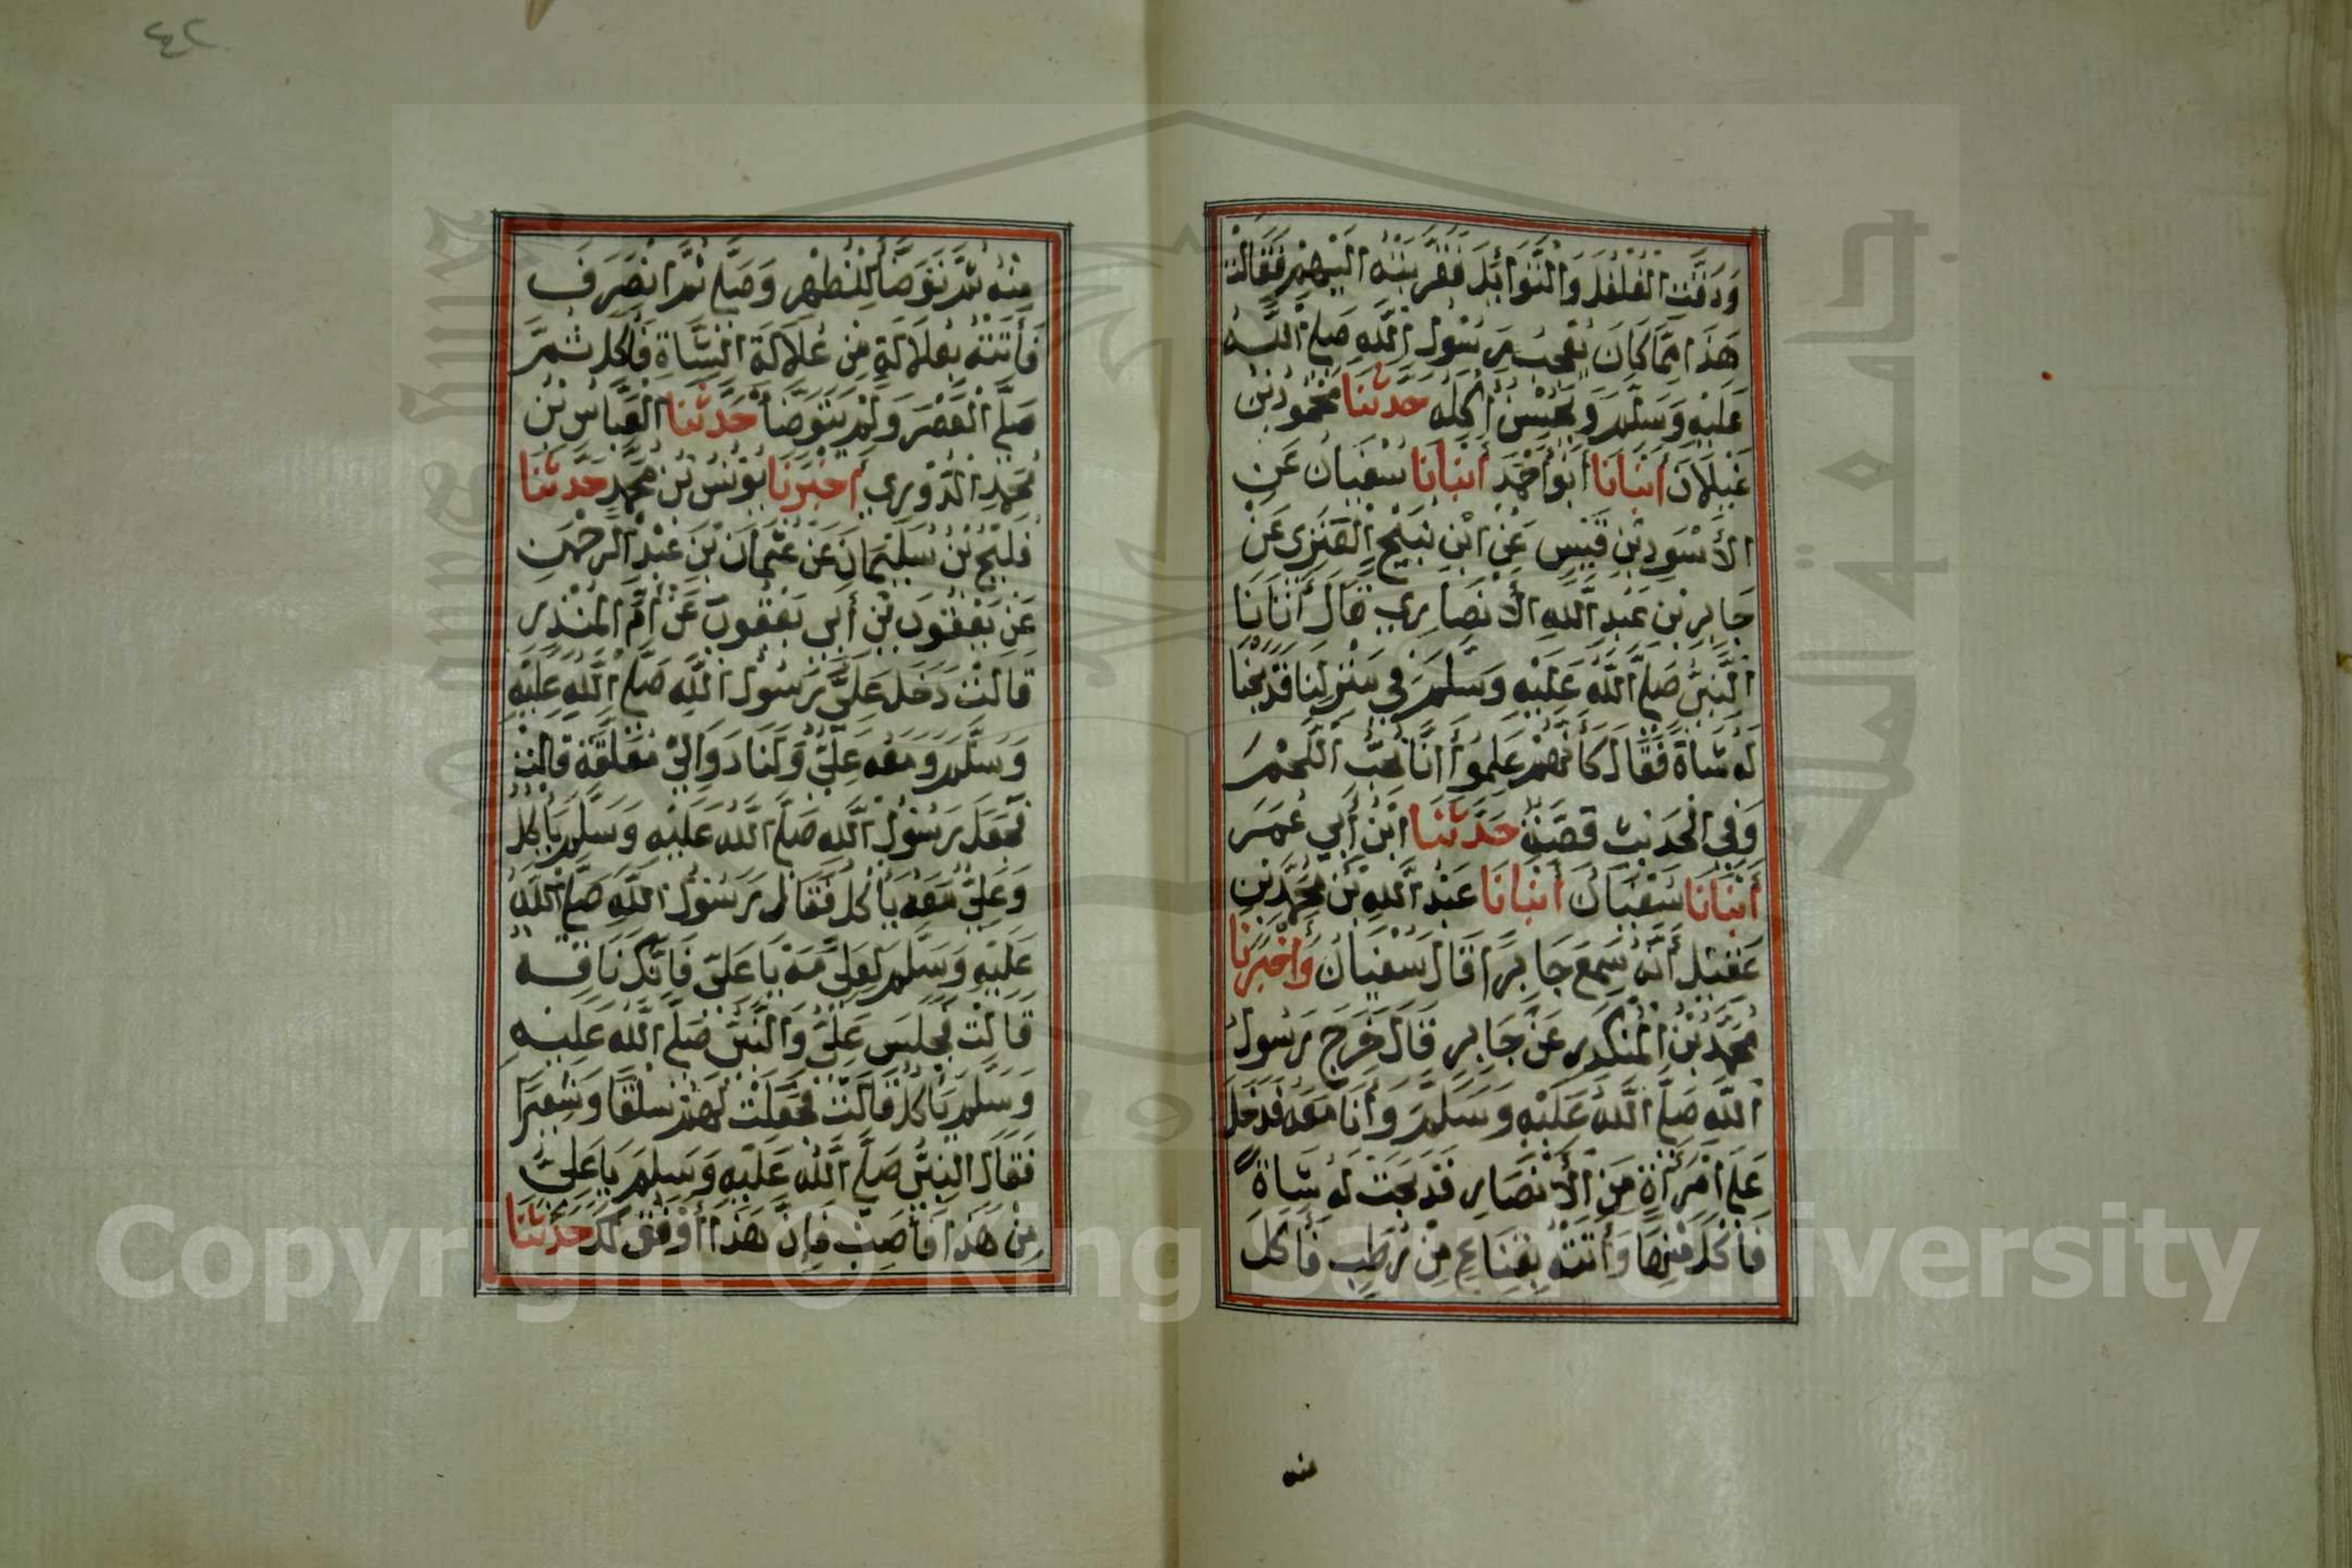 وَدَقَّتِ الْفُلْفُلَ وَالتَّوَابِلَ فَقَرَّبَتْهُ اِلَيْهِمْ فَقَالَتْ
هَذَا مِمَّا كَانَ يُعْجِبُ رَسُولَ اللَّهِ صَلَّى اللَّهُ
عَلَيْهِ وَسَلَّمَ وَيُحْسِنُ أَكْلَهُ حَدَّثَنَا مَحْمُودُ بْنُ
غَيْلَانَ أَنْبَانَا أَبُو أَحْمَدَ أَنْبَانَا سُفْيَانُ عَنِ
الْأَسْوَدِ بْنِ قَيْسٍ عَنِ ابْنِ نُبَيْحٍ الْعَنَزِي عَنْ
جَابِرِ بْنِ عَبْدِ اللَّهِ الْأَنْصَارِيِ قَالَ أَتَانَا
النَّبِيُّ صَلَّى اللَّهُ عَلَيْهِ وَسَلَّمَ فِي مَنْزِلِنَا فَذَبَحْنَا
لَهُ شَاةً فَقَالَ كَأَنَّهُمْ عَلِمُوا أَنَّا نُحِبُّ اللَّحْمَ
وَفِي الْحَدِيثِ قِصَّةٌ حَدَّثَنَا ابْنُ أَبِي عُمَرَ
أَنْبَانَا سُفْيَانُ أَنْبَانَا عَبْدُ اللَّهِ بْنُ مُحَمَّدِ بْنِ
عَقِيْلٍ أَنَّهُ سَمِعَ جَابِرًا قَالَ سُفْيَانُ وَأَخْبَرَنَا
مُحَمَّدُ بْنُ الْمُنْكَدِرِ عَنْ جَابِرٍ قَالَ خَرَجَ رَسُولُ
اللَّهِ صَلَّى اللَّهُ عَلَيْهِ وَسَلَّمَ وَأَنَا مَعَهُ فَدَخَلَ
عَلَى امْرَأَةٍ مِنَ الْأَنْصَارِ فَذَبَحَتْ لَهُ شَاةً
فَأَكَلَ مِنْهَا وَأَتَتْهُ بِقِنَاعٍ مِنْ رُطَبٍ فَأَكَلَ
منه
٤٢
مِنْهُ ثُمَّ تَوَضَّأَ لِلظُّهْرِ وَصَلَّى ثُمَّ انْصَرَفَ
فَأَتَتْهُ بِعُلَالَةٍ مِنْ عُلَالَةِ الشَّاةِ فَأَكَلَ ثُمَّ
صَلَّى الْعَصْرَ وَلَمْ يَتَوَضَّأْ حَدَّثَنَا الْعَبَّاسُ بْنُ
مُحَمَّدٍ الدُّورِي أَخْبَرَنَا يُونُسُ بْنُ مُحَمَّدٍ حَدَّثَنَا
فُلَيْحُ بْنُ سُلَيْمَانَ عَنْ عُثْمَانَ بْنِ عَبْدِ الرَّحْمَنِ
عَنْ يَعْقُوبَ بْنِ أَبِي يَعْقُوبَ عَنْ أُمِّ الْمُنْذِرِ
قَالَتْ دَخَلَ عَلَيَّ رَسُولُ اللَّهِ صَلَّى اللَّهُ عَلَيْهِ
وَسَلَّمَ وَمَعَهُ عَلِيٌّ وَلَنَا دَوَالِيْ مُعَلَّقَةٌ قَالَتْ
فَجَعَلَ رَسُولُ اللَّهِ صَلَّى اللَّهُ عَلَيْهِ وَسَلَّمَ يَأْكُلُ
وَعَلِيٌّ مَعَهُ يَأْكُلُ فَقَالَ رَسُولُ اللَّهِ صَلَّى اللَّهُ
عَلَيْهِ وَسَلَّمَ لِعَلِيٍّ مَهْ يَا عَلِيُّ فَإِنَّكَ نَاقِهٌ
قَالَتْ فَجَلَسَ عَلِيٌّ وَالنَّبِيُّ صَلَّى اللَّهُ عَلَيْهِ
وَسَلَّمَ يَأْكُلُ قَالَتْ فَجَعَلْتُ لَهُمْ سِلْقًا وَشَعِيْرًا
فَقَالَ النَّبِيُّ صَلَّى اللَّهُ عَلَيْهِ وَسَلَّمَ يَا عَلِيُّ
مِنْ هَذَا فَأَصِبْ فَإِنَّ هَذَا أَوْفَقُ لَكَ حَدَّثَنَا
Copyright © King Saud University